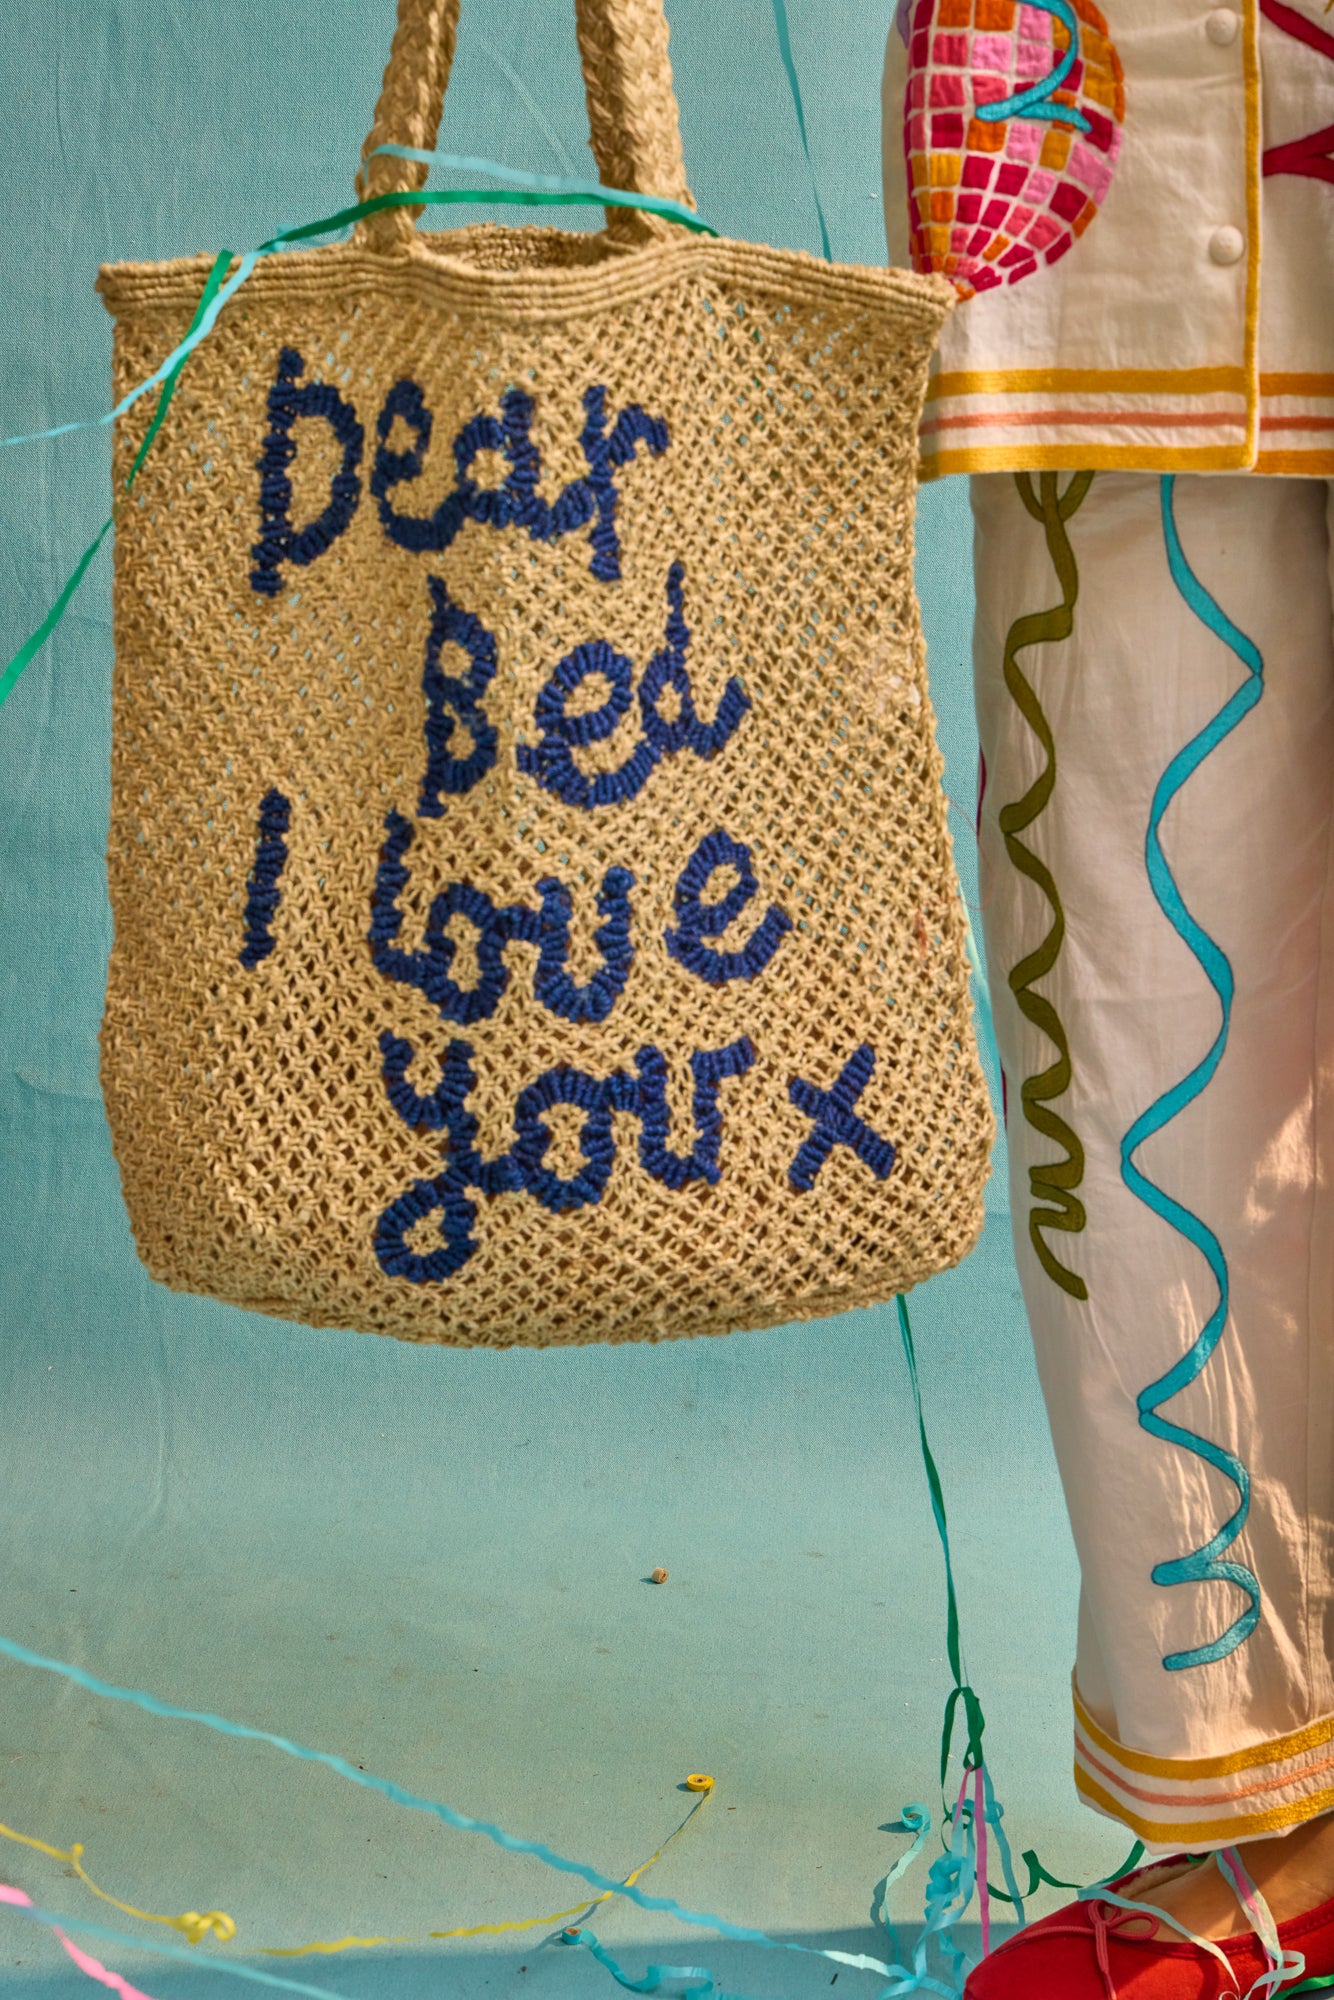 Dear
Bed
I love
you x